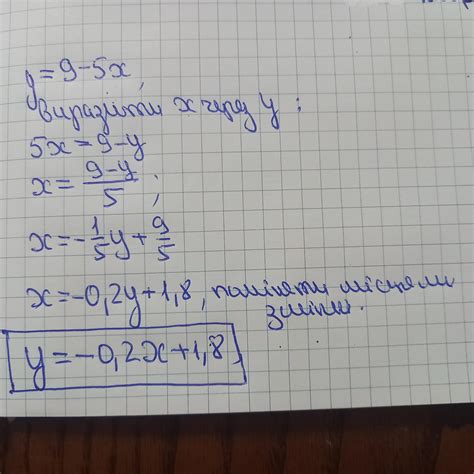 y=9-5x,
виразіти x через y:
5x=9-y
x=\frac{9-y}{5};
x=-\frac{1}{5}y+\frac{9}{5}
x=-0,2y+1,8, поміняти місцями
змінні.
y=-0,2x+1,8